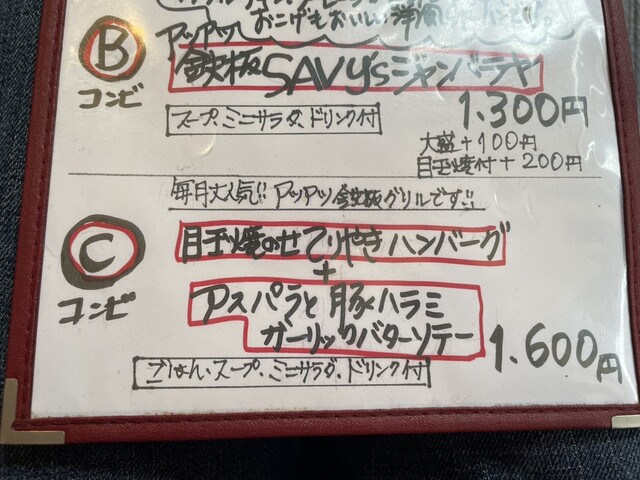 おこげもおいしい洋風
B
コンビ
アツアツ
鉄板SAVY'Sジャンバラヤ
1.300円
スープ、ミニサラダ、ドリンク付
大盛+100円
目玉焼付+200円
毎月大人気!! アツアツ鉄板グリルです!!
C
コンビ
目玉焼のせてりやきハンバーグ
+
アスパラと豚ハラミ
ガーリックバターソテー
1.600円
ごはん、スープ、ミニサラダ、ドリンク付